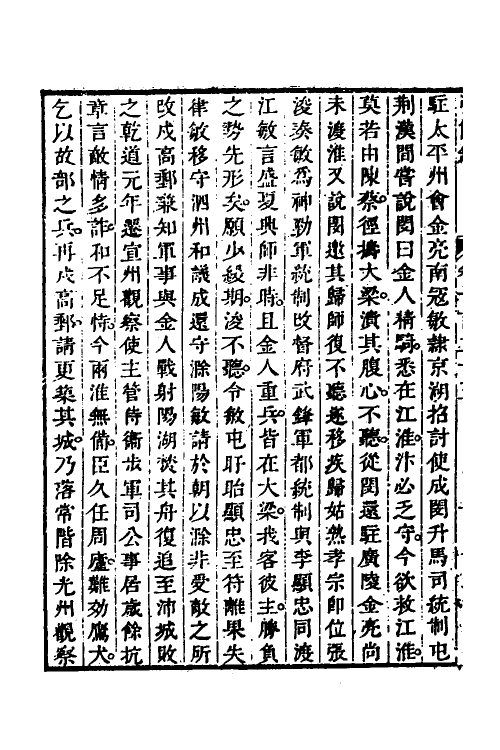 駐太平州會金亮南冦敏隸京湖招討使成閔升馬司統制屯
荆漢間嘗說閔曰金人精騎悉在江淮。汴必乏守。今欲救江淮。
莫若由陳蔡。徑擣大梁。潰其腹心。不聽。從閔還駐廣陵金亮尚
未渡淮又說閔邀其歸師復不聽。遂移疾歸姑熟孝宗卽位張
浚奏敏爲神勁軍統制改督府武鋒軍都統制與李顯忠同渡
江敏言盛夏興師非時。且金人重兵。皆在大梁。我客彼主。勝負
之勢先形矣。願少緩期。浚不聽。令敏屯盱眙顯忠至符離果失
律敏移守泗州和議成還守滁陽敏請於朝以滁非受敵之所
改戍高郵兼知軍事與金人戰射陽湖焚其舟復追至沛城敗
之乾道元年還宣州觀察使主管侍衞步軍司公事居歲餘抗
章言敵情多詐。和不足恃。今兩淮無備。臣久任周廬。難効鷹犬。
乞以故部之兵。再戍高郵。請更築其城。乃落常階除光州觀察